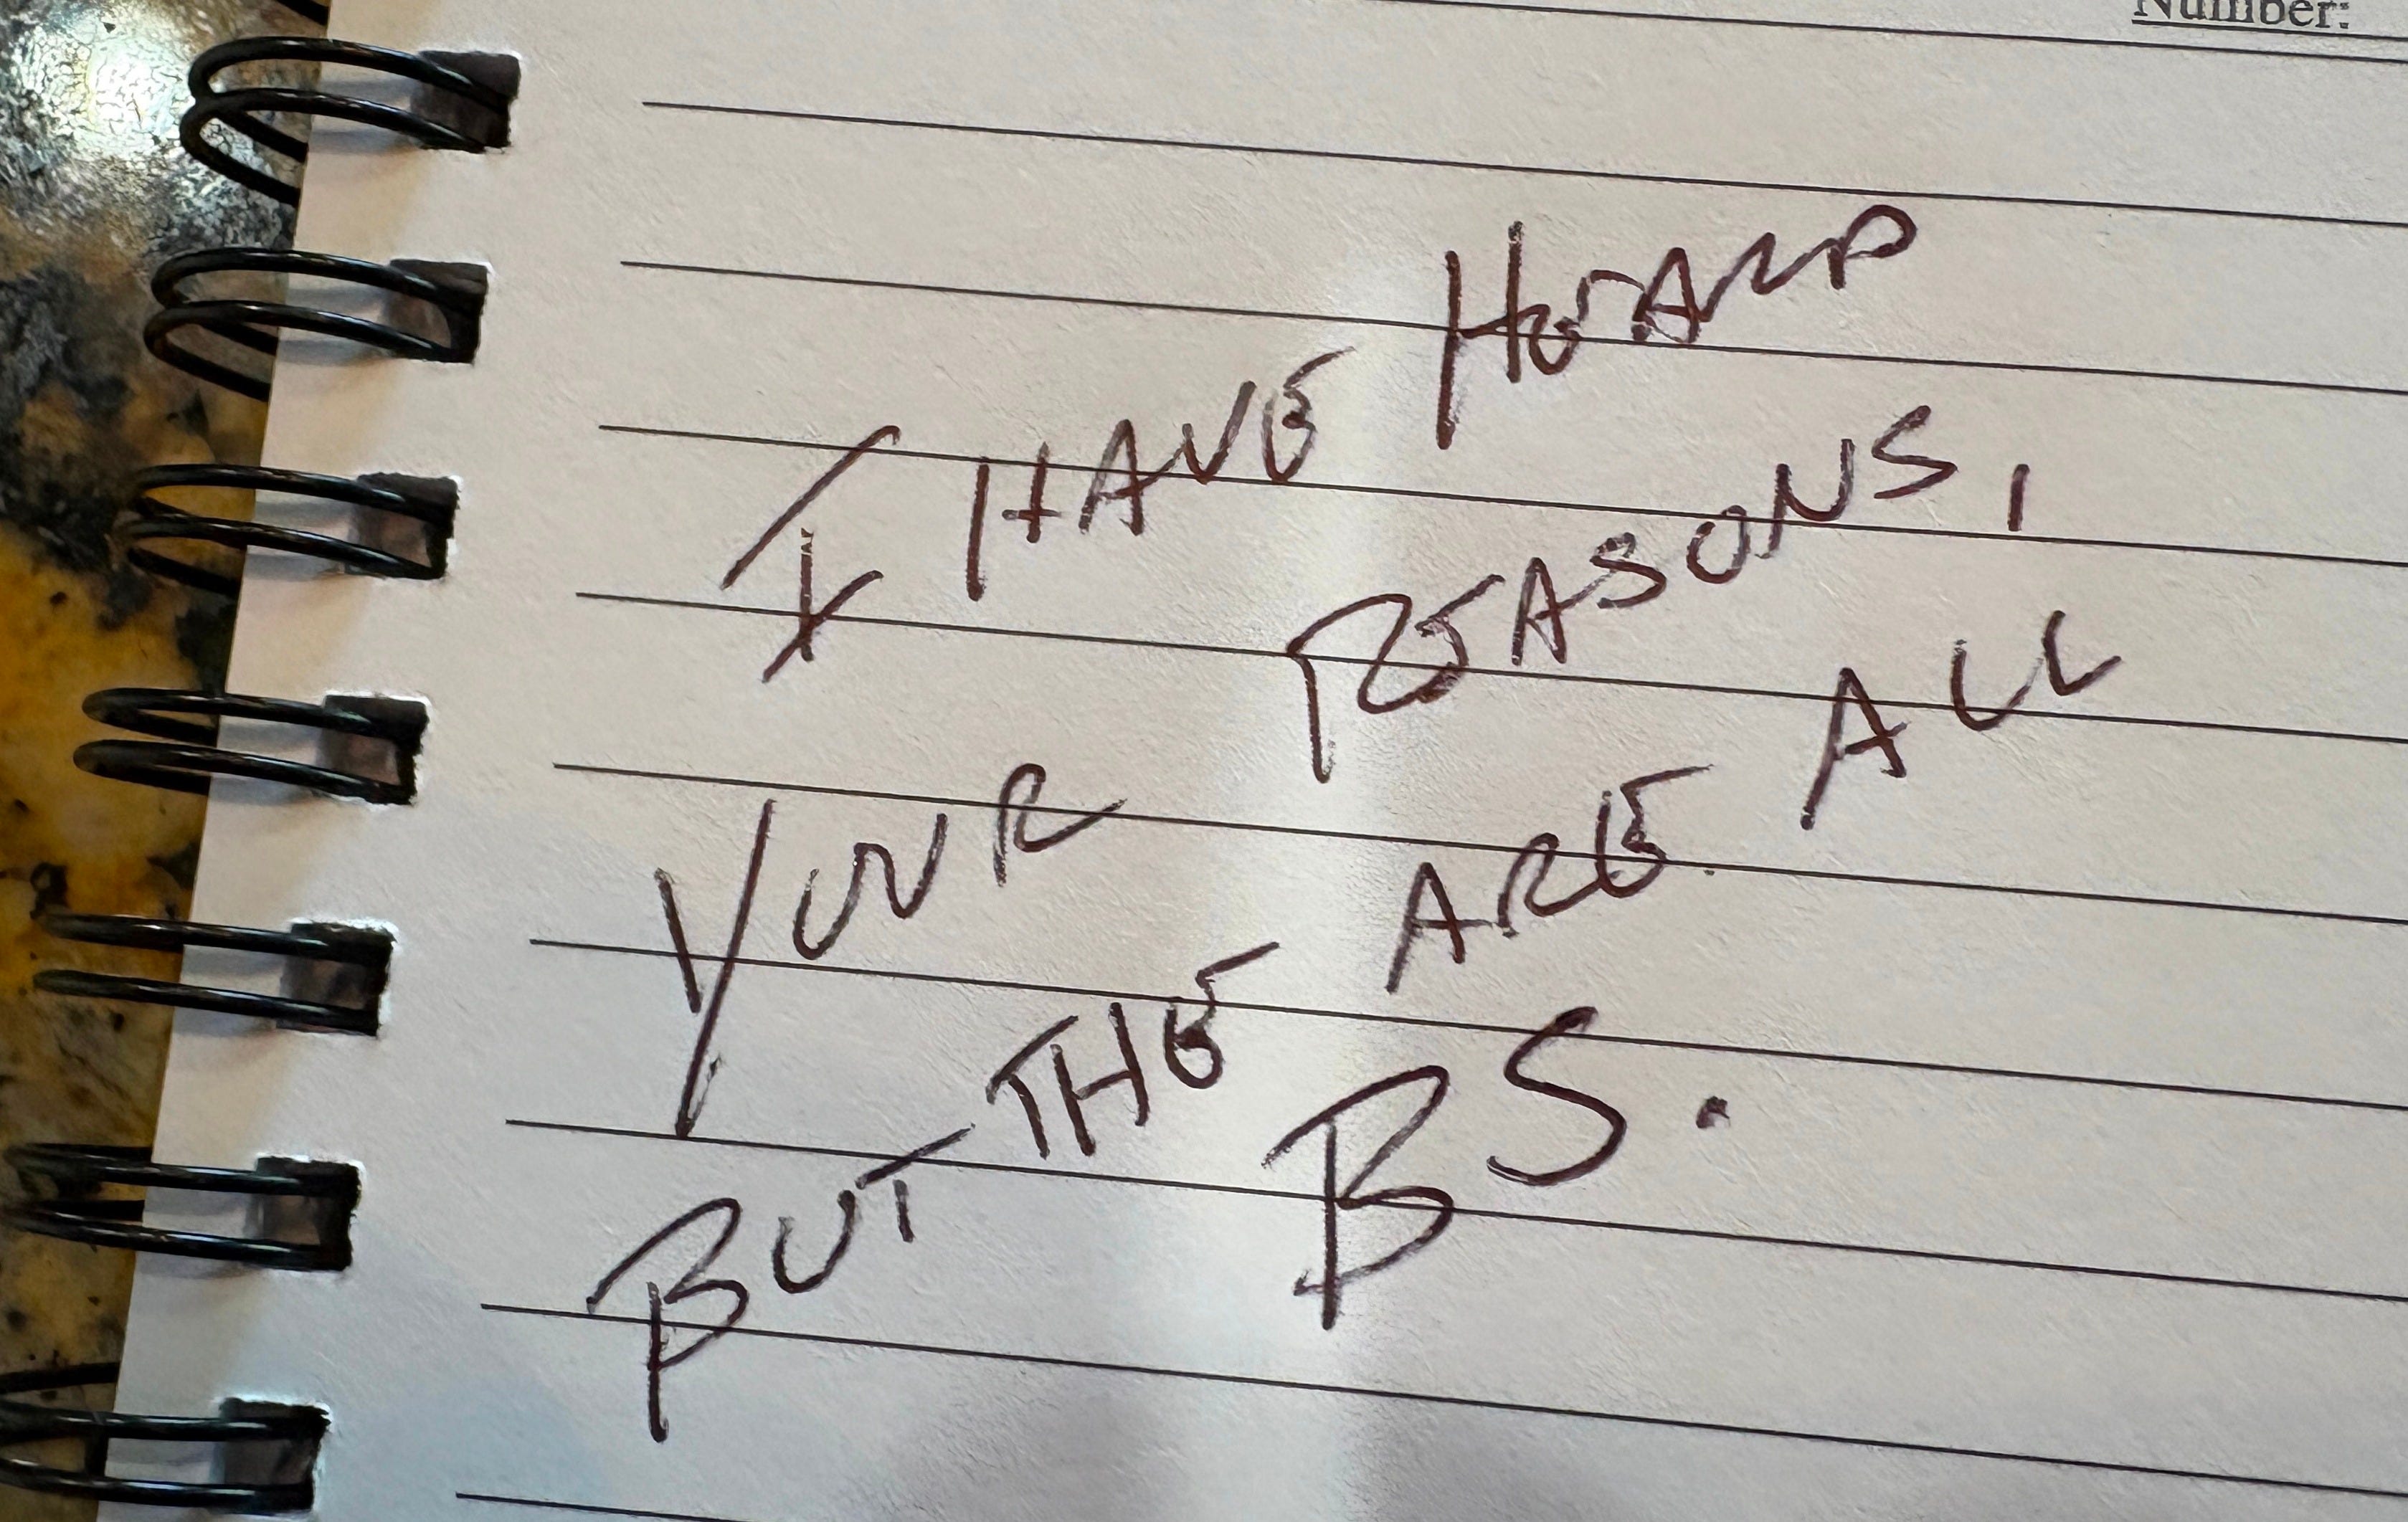 Number:
I HAVE HEARD
YOUR REASONS,
BUT THE ARE ALL
BS.